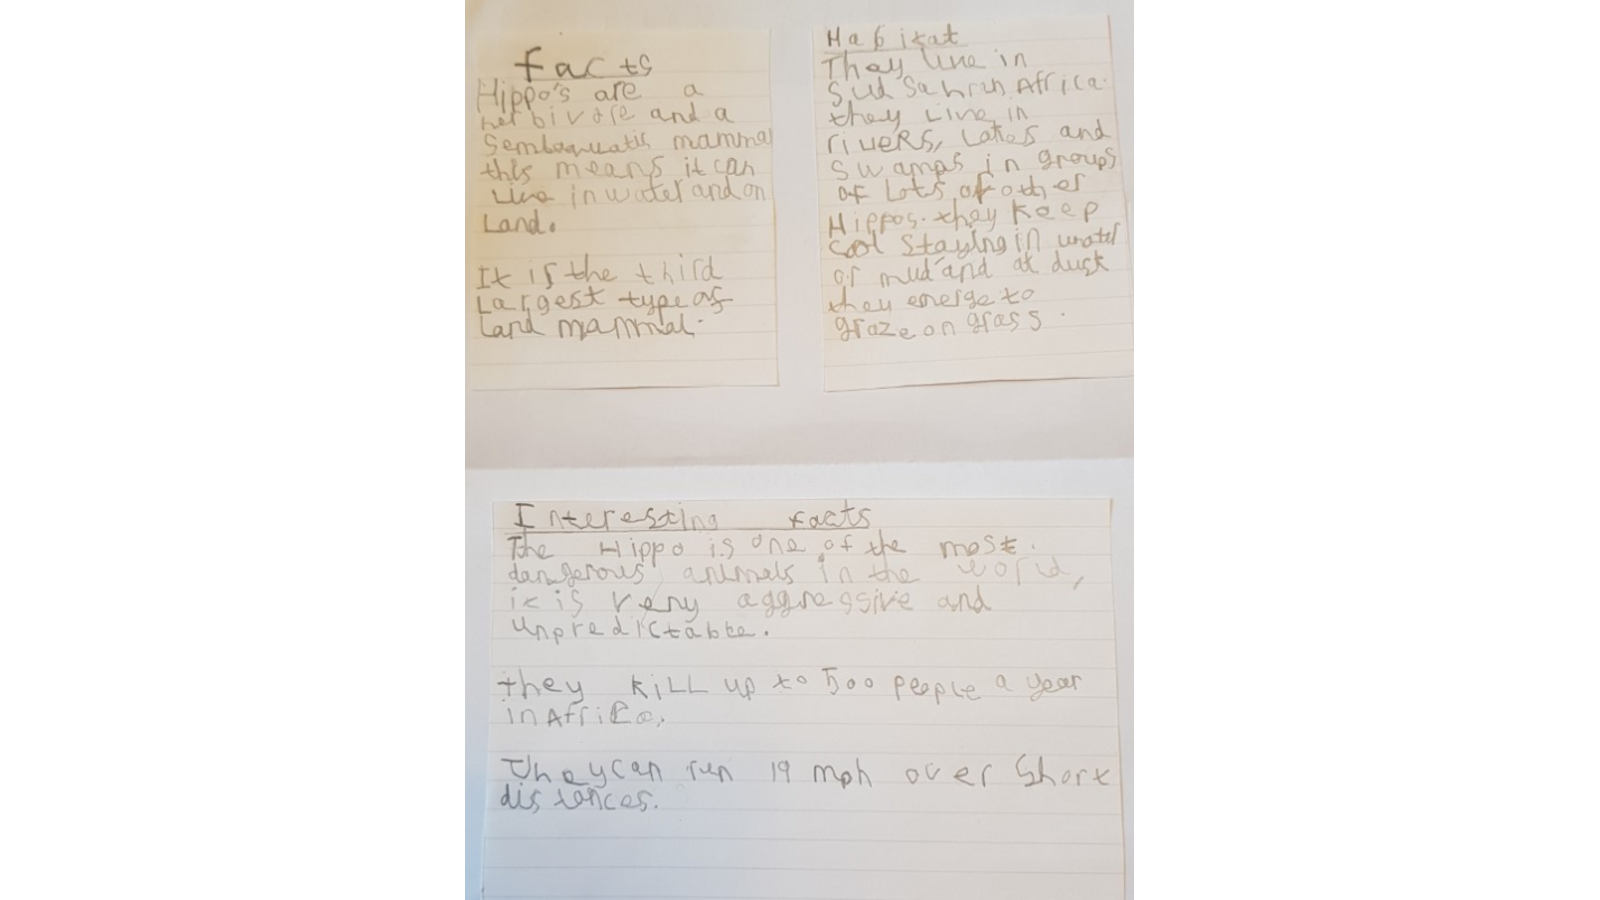 facts
Hippo's are a
herbivore and a
Sembaquatic mammal
this means it can
Live in water and on
Land.
It is the third
Largest type of
Land mammal.
Habitat
They live in
Sub Sahran Africa.
they Live in
rivers, Lakes and
Swamps in groups
of Lots of other
Hippos. they keep
cool staying in water
or mud and at dusk
they emerge to
graze on grass.
Interesting facts
The Hippo is one of the most
dangerous animals in the world,
it is very aggressive and
unpredictable.
they kill up to 500 people a year
in Africa.
They can run 19 mph over Short
distances.